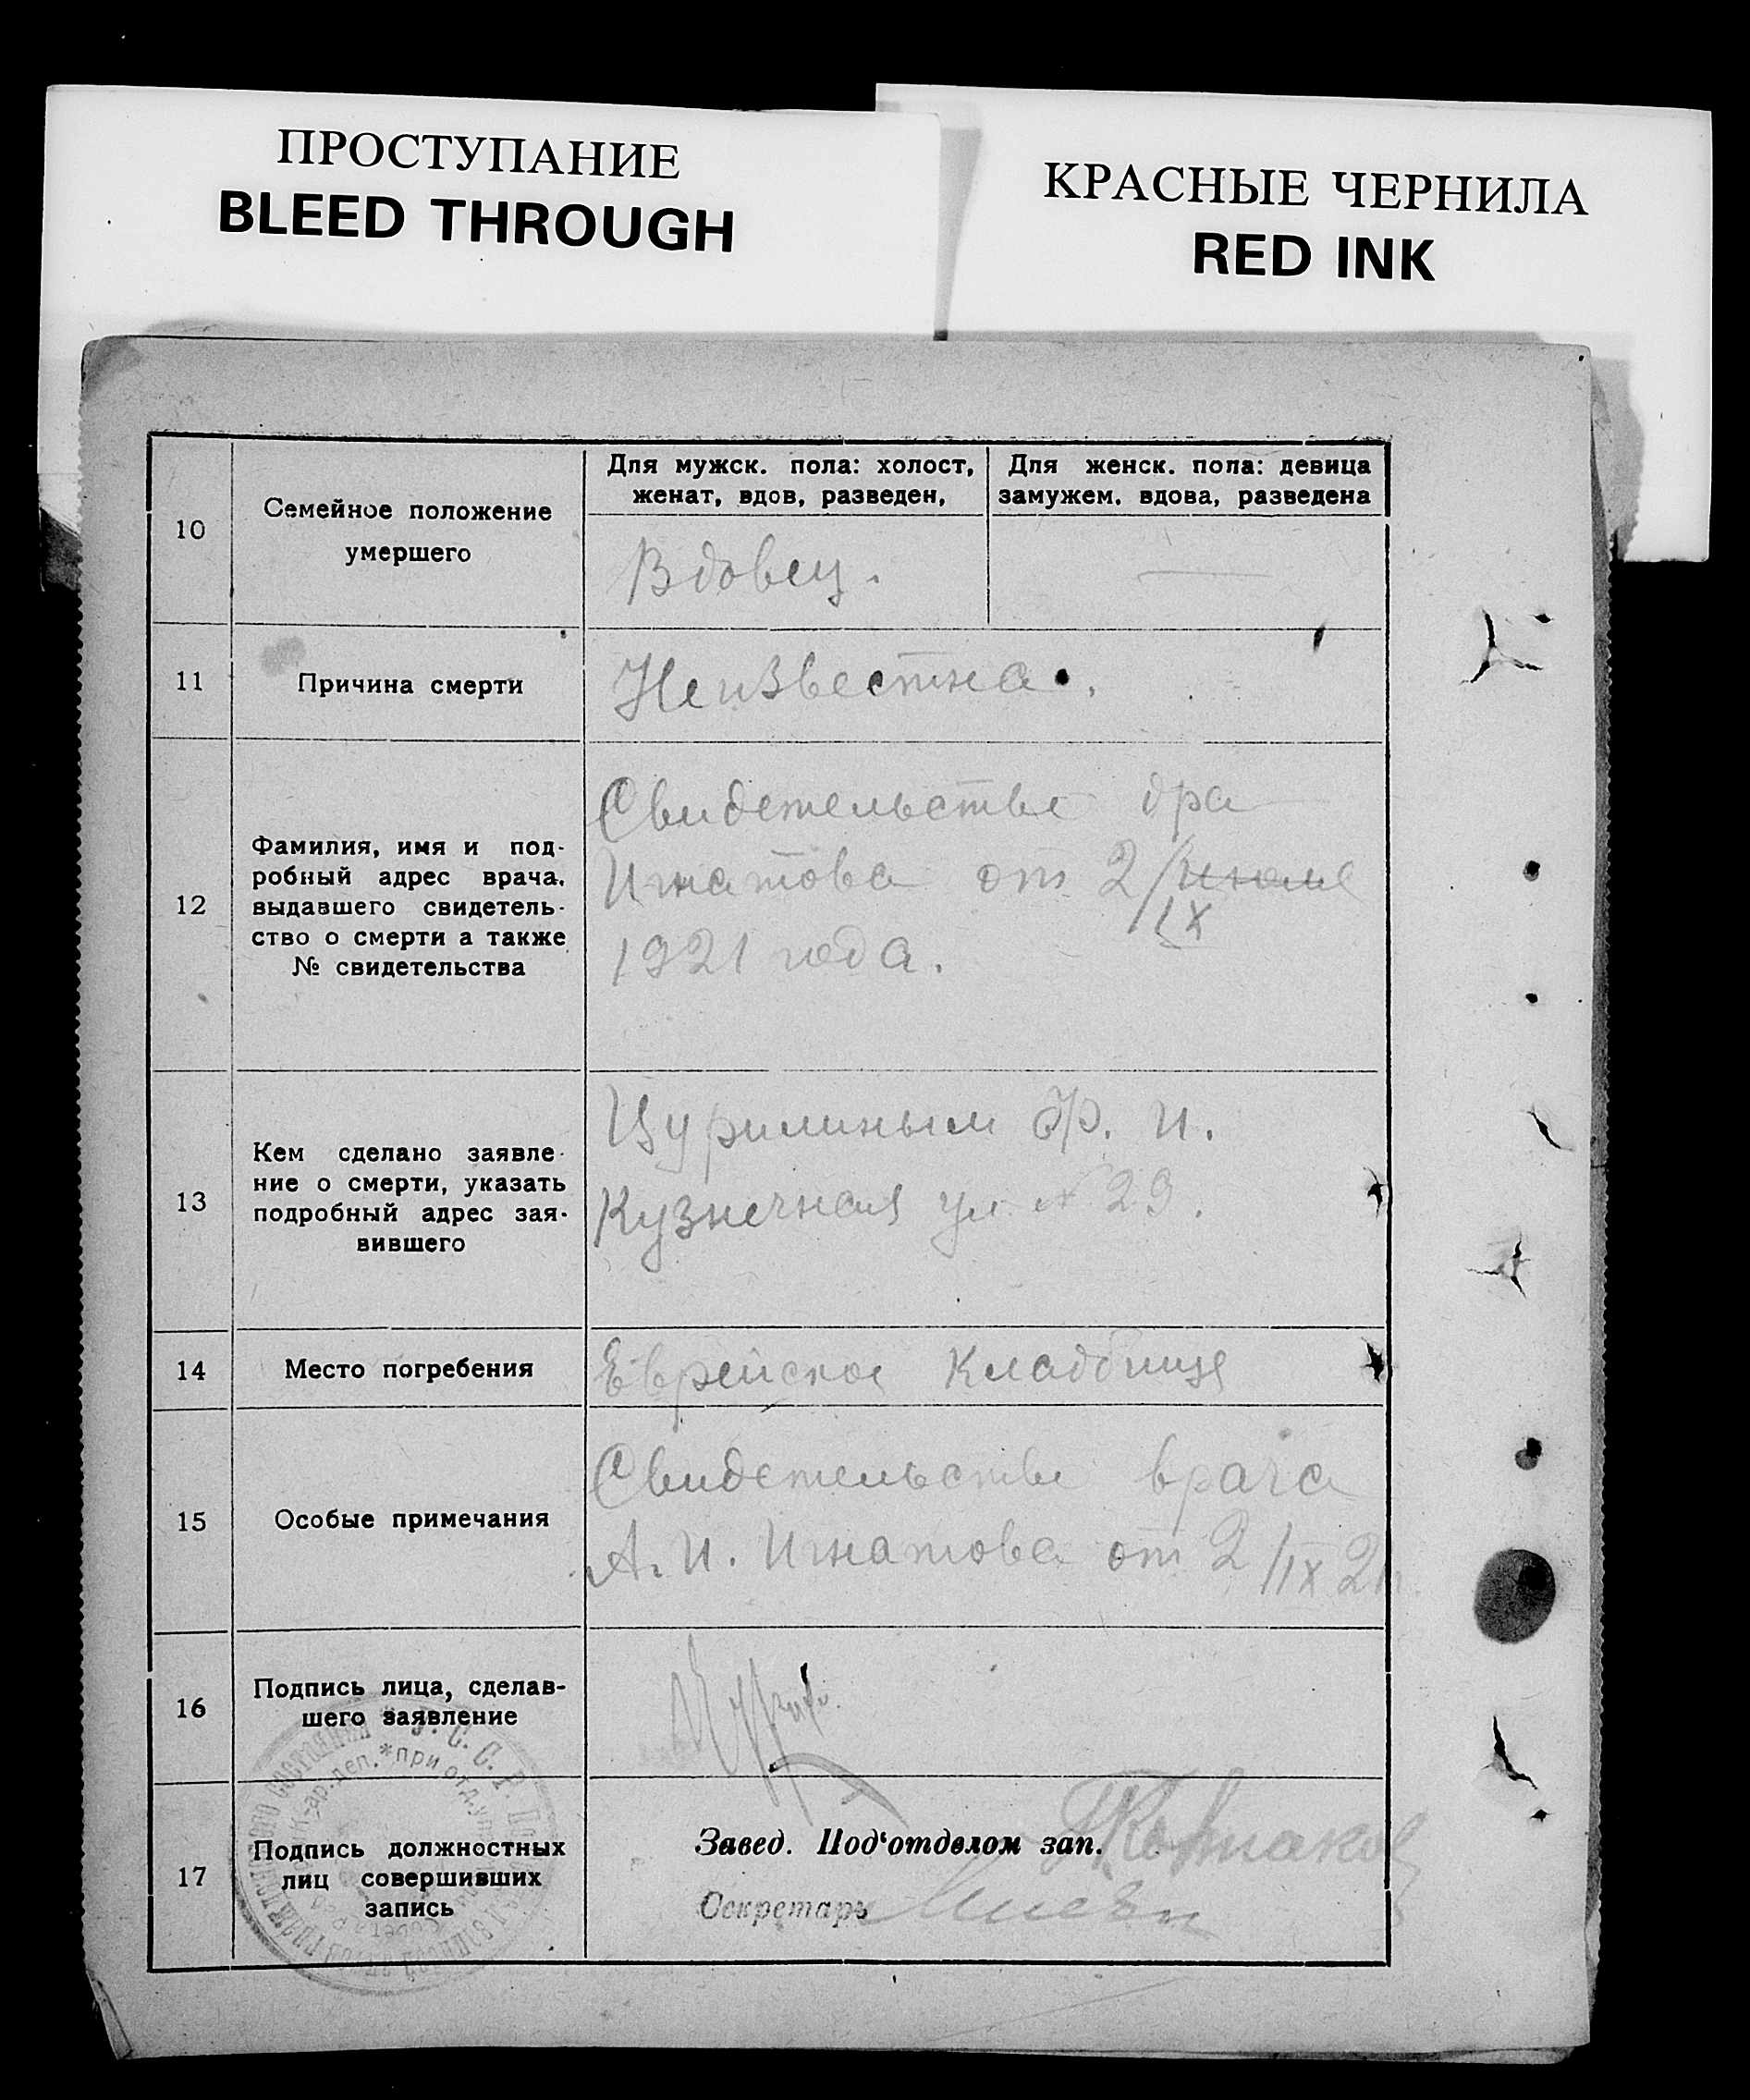 ПРОСТУПАНИЕ
BLEED THROUGH
КРАСНЫЕ ЧЕРНИЛА
RED INK
10
Семейное положение
умершего
Для мужск. пола: холост,
женат, вдов, разведен,
Для женск. пола: девица
замужем. вдова, разведена
Вдовец.
11
Причина смерти
Неизвестна.
12
Фамилия, имя и под-
робный адрес врача,
выдавшего свидетель-
ство о смерти а также
№ свидетельства
Свидетельство д-ра
Игнатова от 2/июля
IX
1921 года.
13
Кем сделано заявле-
ние о смерти, указать
подробный адрес зая-
вившего
Цурилиным И.
Кузнечная ул. № 29.
14
Место погребения
Еврейское Кладбище
15
Особые примечания
Свидетельство врача
А. И. Игнатова от 2/IX 21
16
Подпись лица, сделав-
шего заявление
17
Подпись должностных
лиц совершивших
запись
Завед. Под'отделом зап.
Секретарь